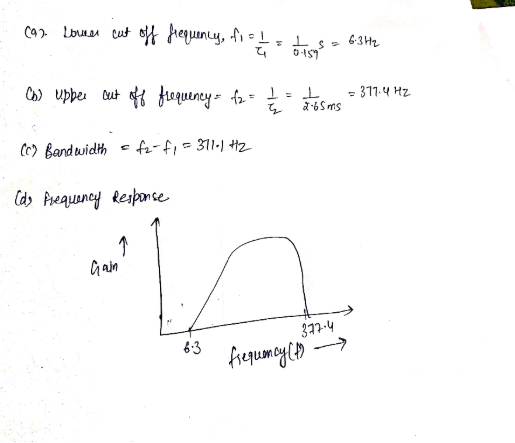 (a). Lower cut off frequency, f₁ = 1/τ₁ = 1/0.159 s = 6.3Hz
(b) Upper cut off frequency = f₂ = 1/τ₂ = 1/2.65 ms = 377.4 Hz
(c) Bandwidth = f₂-f₁ = 371.1 Hz
(d) Frequency Response
Gain
6.3
377.4
frequency(f)